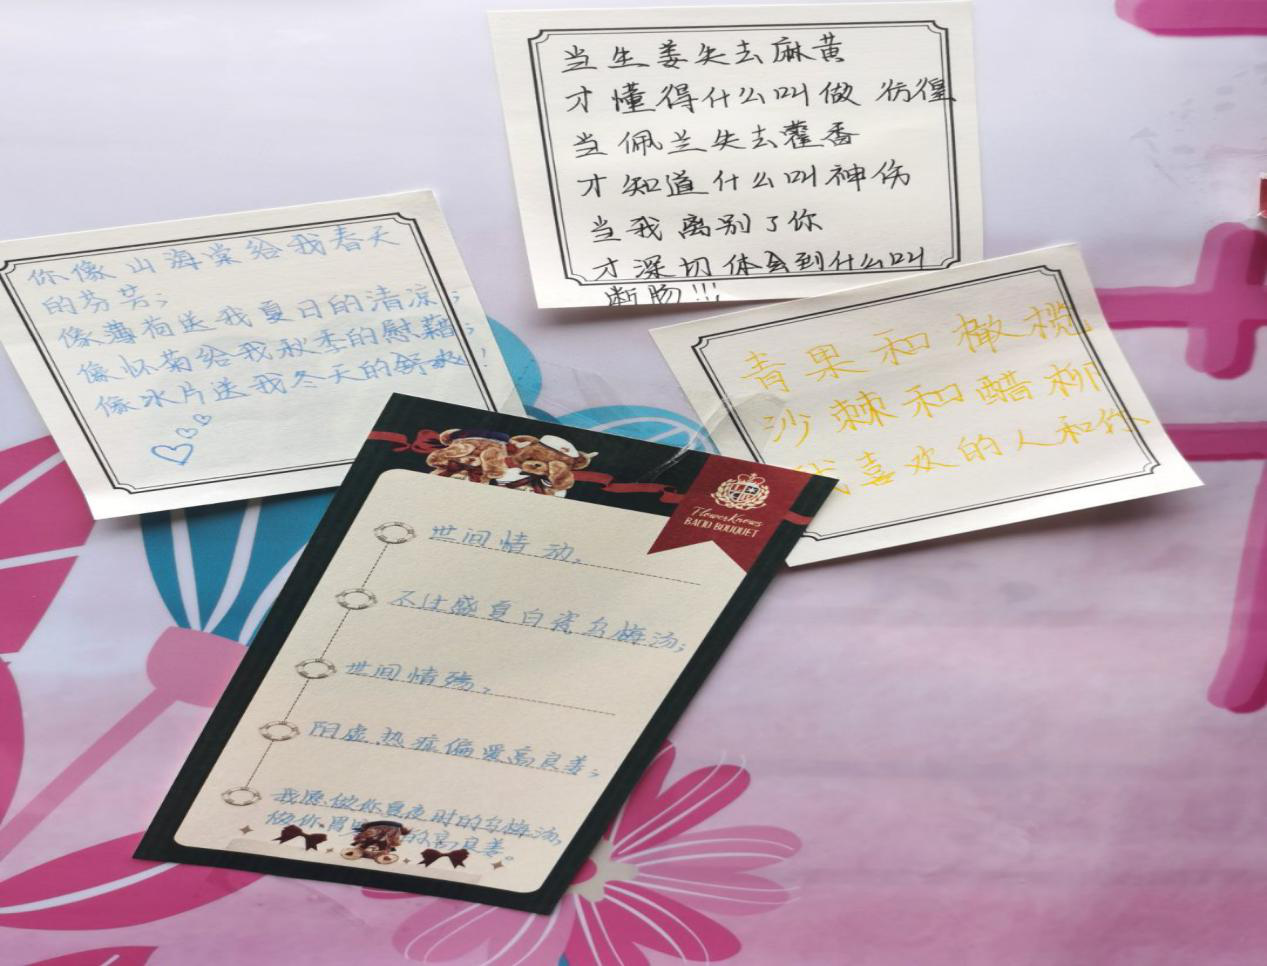 当生姜失去麻黄
才懂得什么叫做彷徨
当佩兰失去藿香
才知道什么叫神伤
当我离别了你
才深切体会到什么叫
断肠!!!
你像山海棠给我春天
的芬芳;
像薄荷送我夏日的清凉;
像怀菊给我秋季的慰藉;
像冰片送我冬天的舒爽!
青果和橄榄
沙棘和醋柳
我喜欢的人和你
Flower Knows
BAND BOUQUET
世间情动,
不过盛夏白瓷乌梅汤;
世间情殇,
阴虚热症偏爱高良姜;
我愿做你夏夜时的乌梅汤,
做你胃 的高良姜。